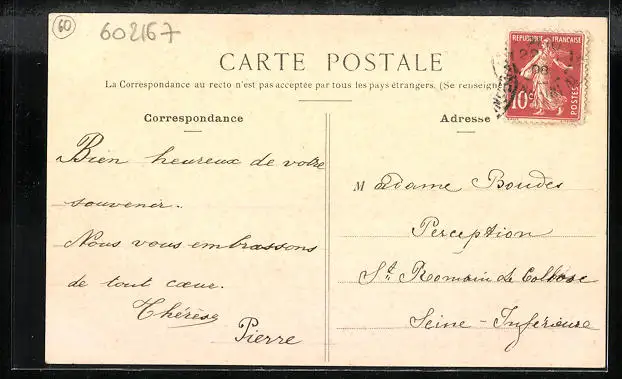 60
602167
CARTE POSTALE
La Correspondance au recto n'est pas acceptée par tous les pays étrangers. (Se renseign
REPUBLIQUE FRANÇAISE
10c
POSTES
Correspondance
Bien heureux de votre
souvenir.
Nous vous embrassons
de tout cœur.
Thérèse
Pierre
Adresse
Madame Boudes
Perception
St Romain de Colbosc
Seine-Inférieure